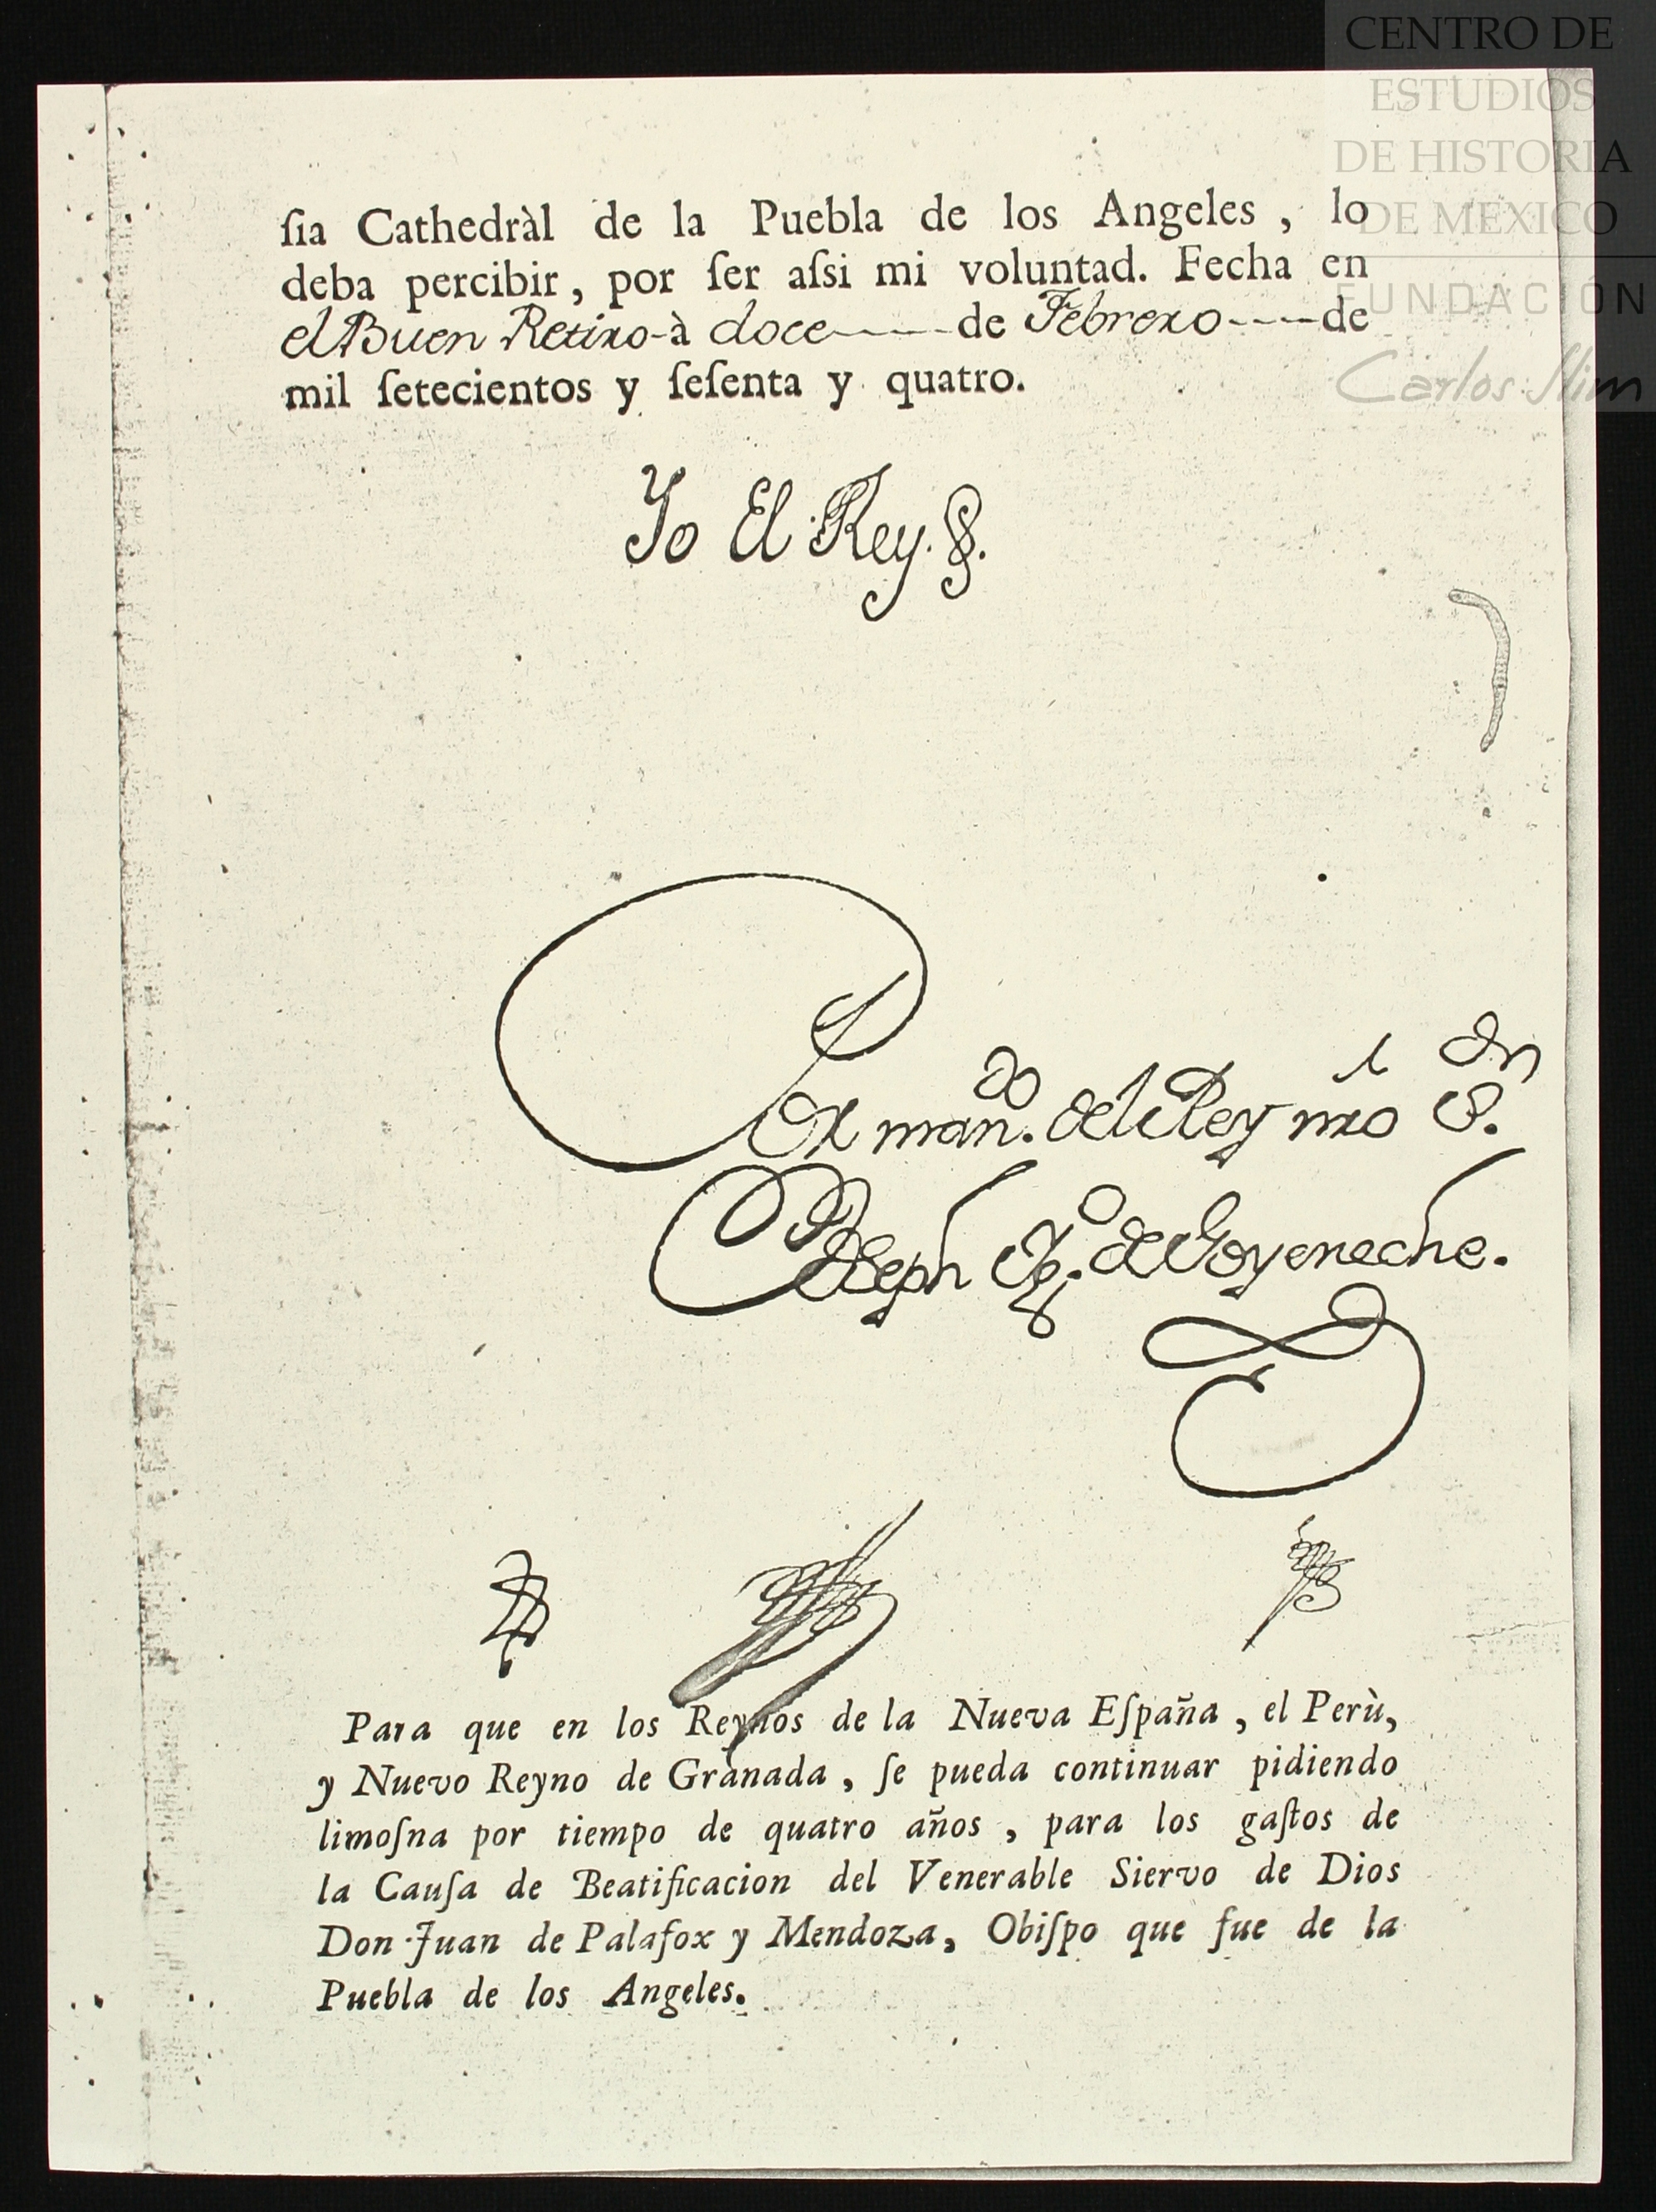 CENTRO DE
ESTUDIOS
DE HISTORIA
DE MEXICO
FUNDACIÓN
Carlos Slim
ſia Cathedràl de la Puebla de los Angeles, lo
deba percibir, por ſer aſsi mi voluntad. Fecha en
el Buen Retiro à doce de Febrero de
mil ſetecientos y ſeſenta y quatro.
Yo El Rey.
Por man.do del Rey nro S.
Joseph Ig.o de Goyeneche.
Para que en los Reynos de la Nueva Eſpaña, el Perù,
y Nuevo Reyno de Granada, ſe pueda continuar pidiendo
limoſna por tiempo de quatro años, para los gaſtos de
la Cauſa de Beatificacion del Venerable Siervo de Dios
Don Juan de Palafox y Mendoza, Obiſpo que fue de la
Puebla de los Angeles.